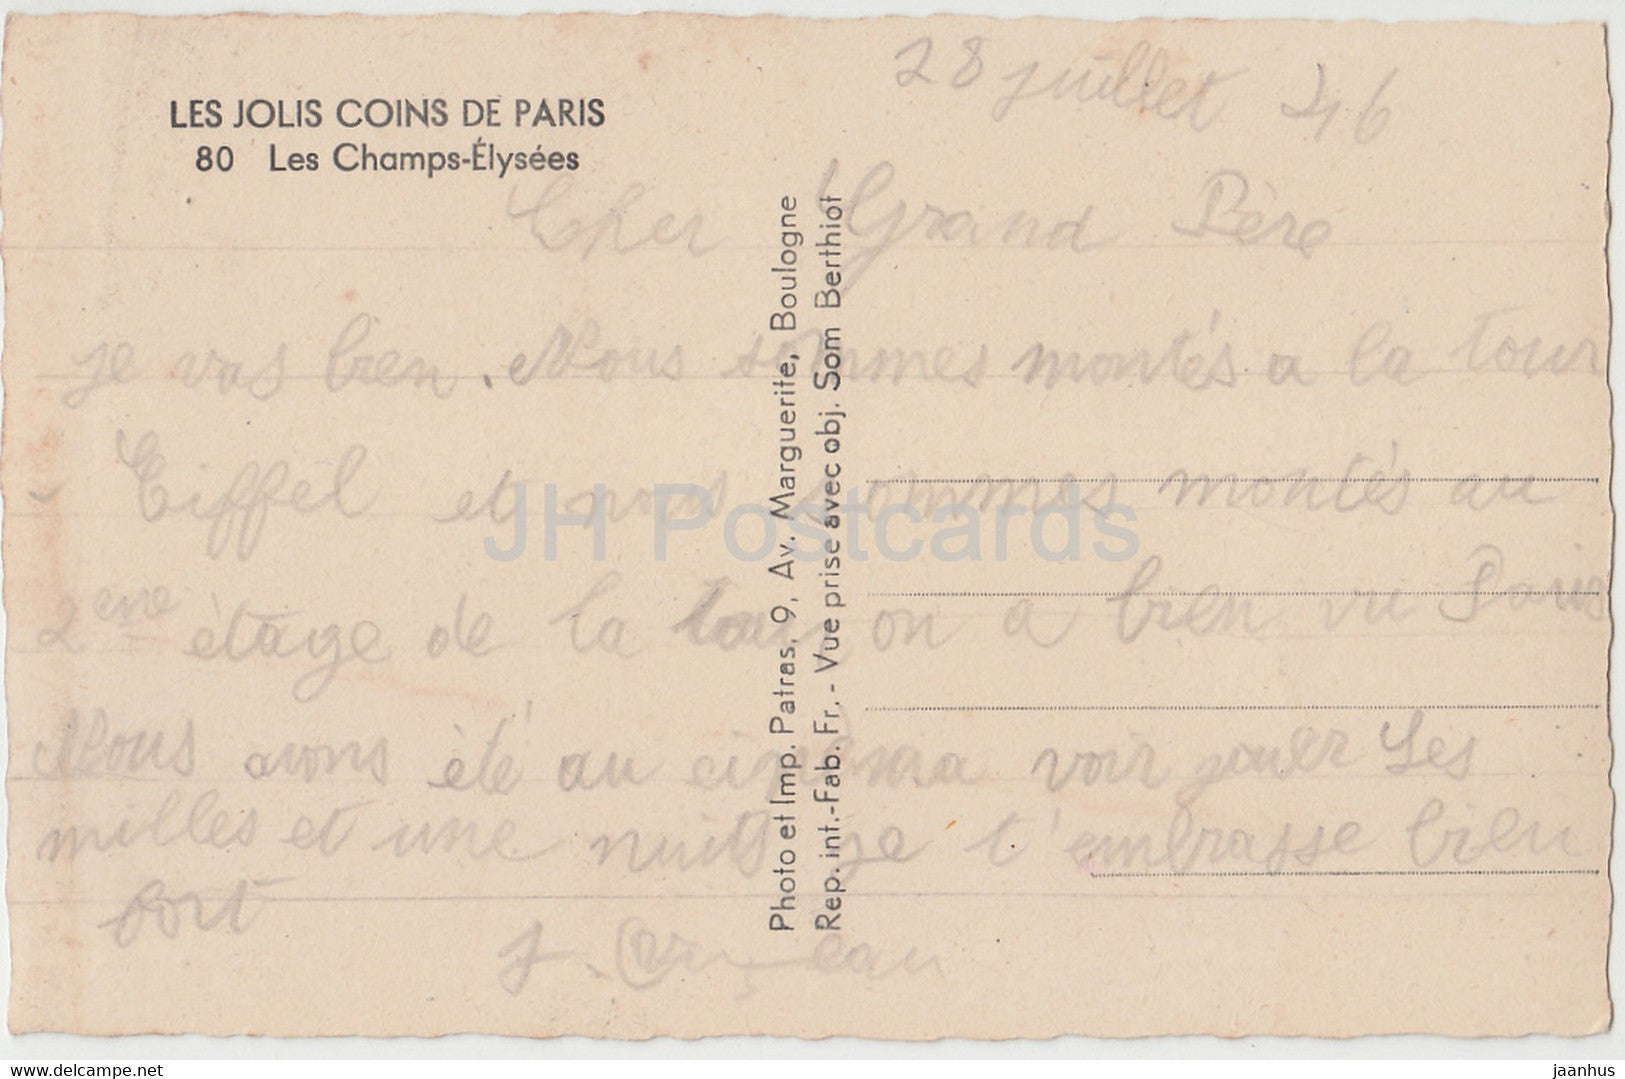 LES JOLIS COINS DE PARIS
80 Les Champs-Élysées
28 juillet 46
Cher Grand Père
je vas bien. Nous sommes montés a la tour
Eiffel et nous sommes montés au
2eme étage de la tour on a bien vu Paris
Nous avons été au cinéma voir jouer Les
milles et une nuits je t'embrasse bien
fort
J.
Photo et Imp. Patras, 9, Av. Marguerite, Boulogne
Rep. int.-Fab. Fr. - Vue prise avec obj. Som Berthiot
JH Postcards
www.delcampe.net
jaanhus